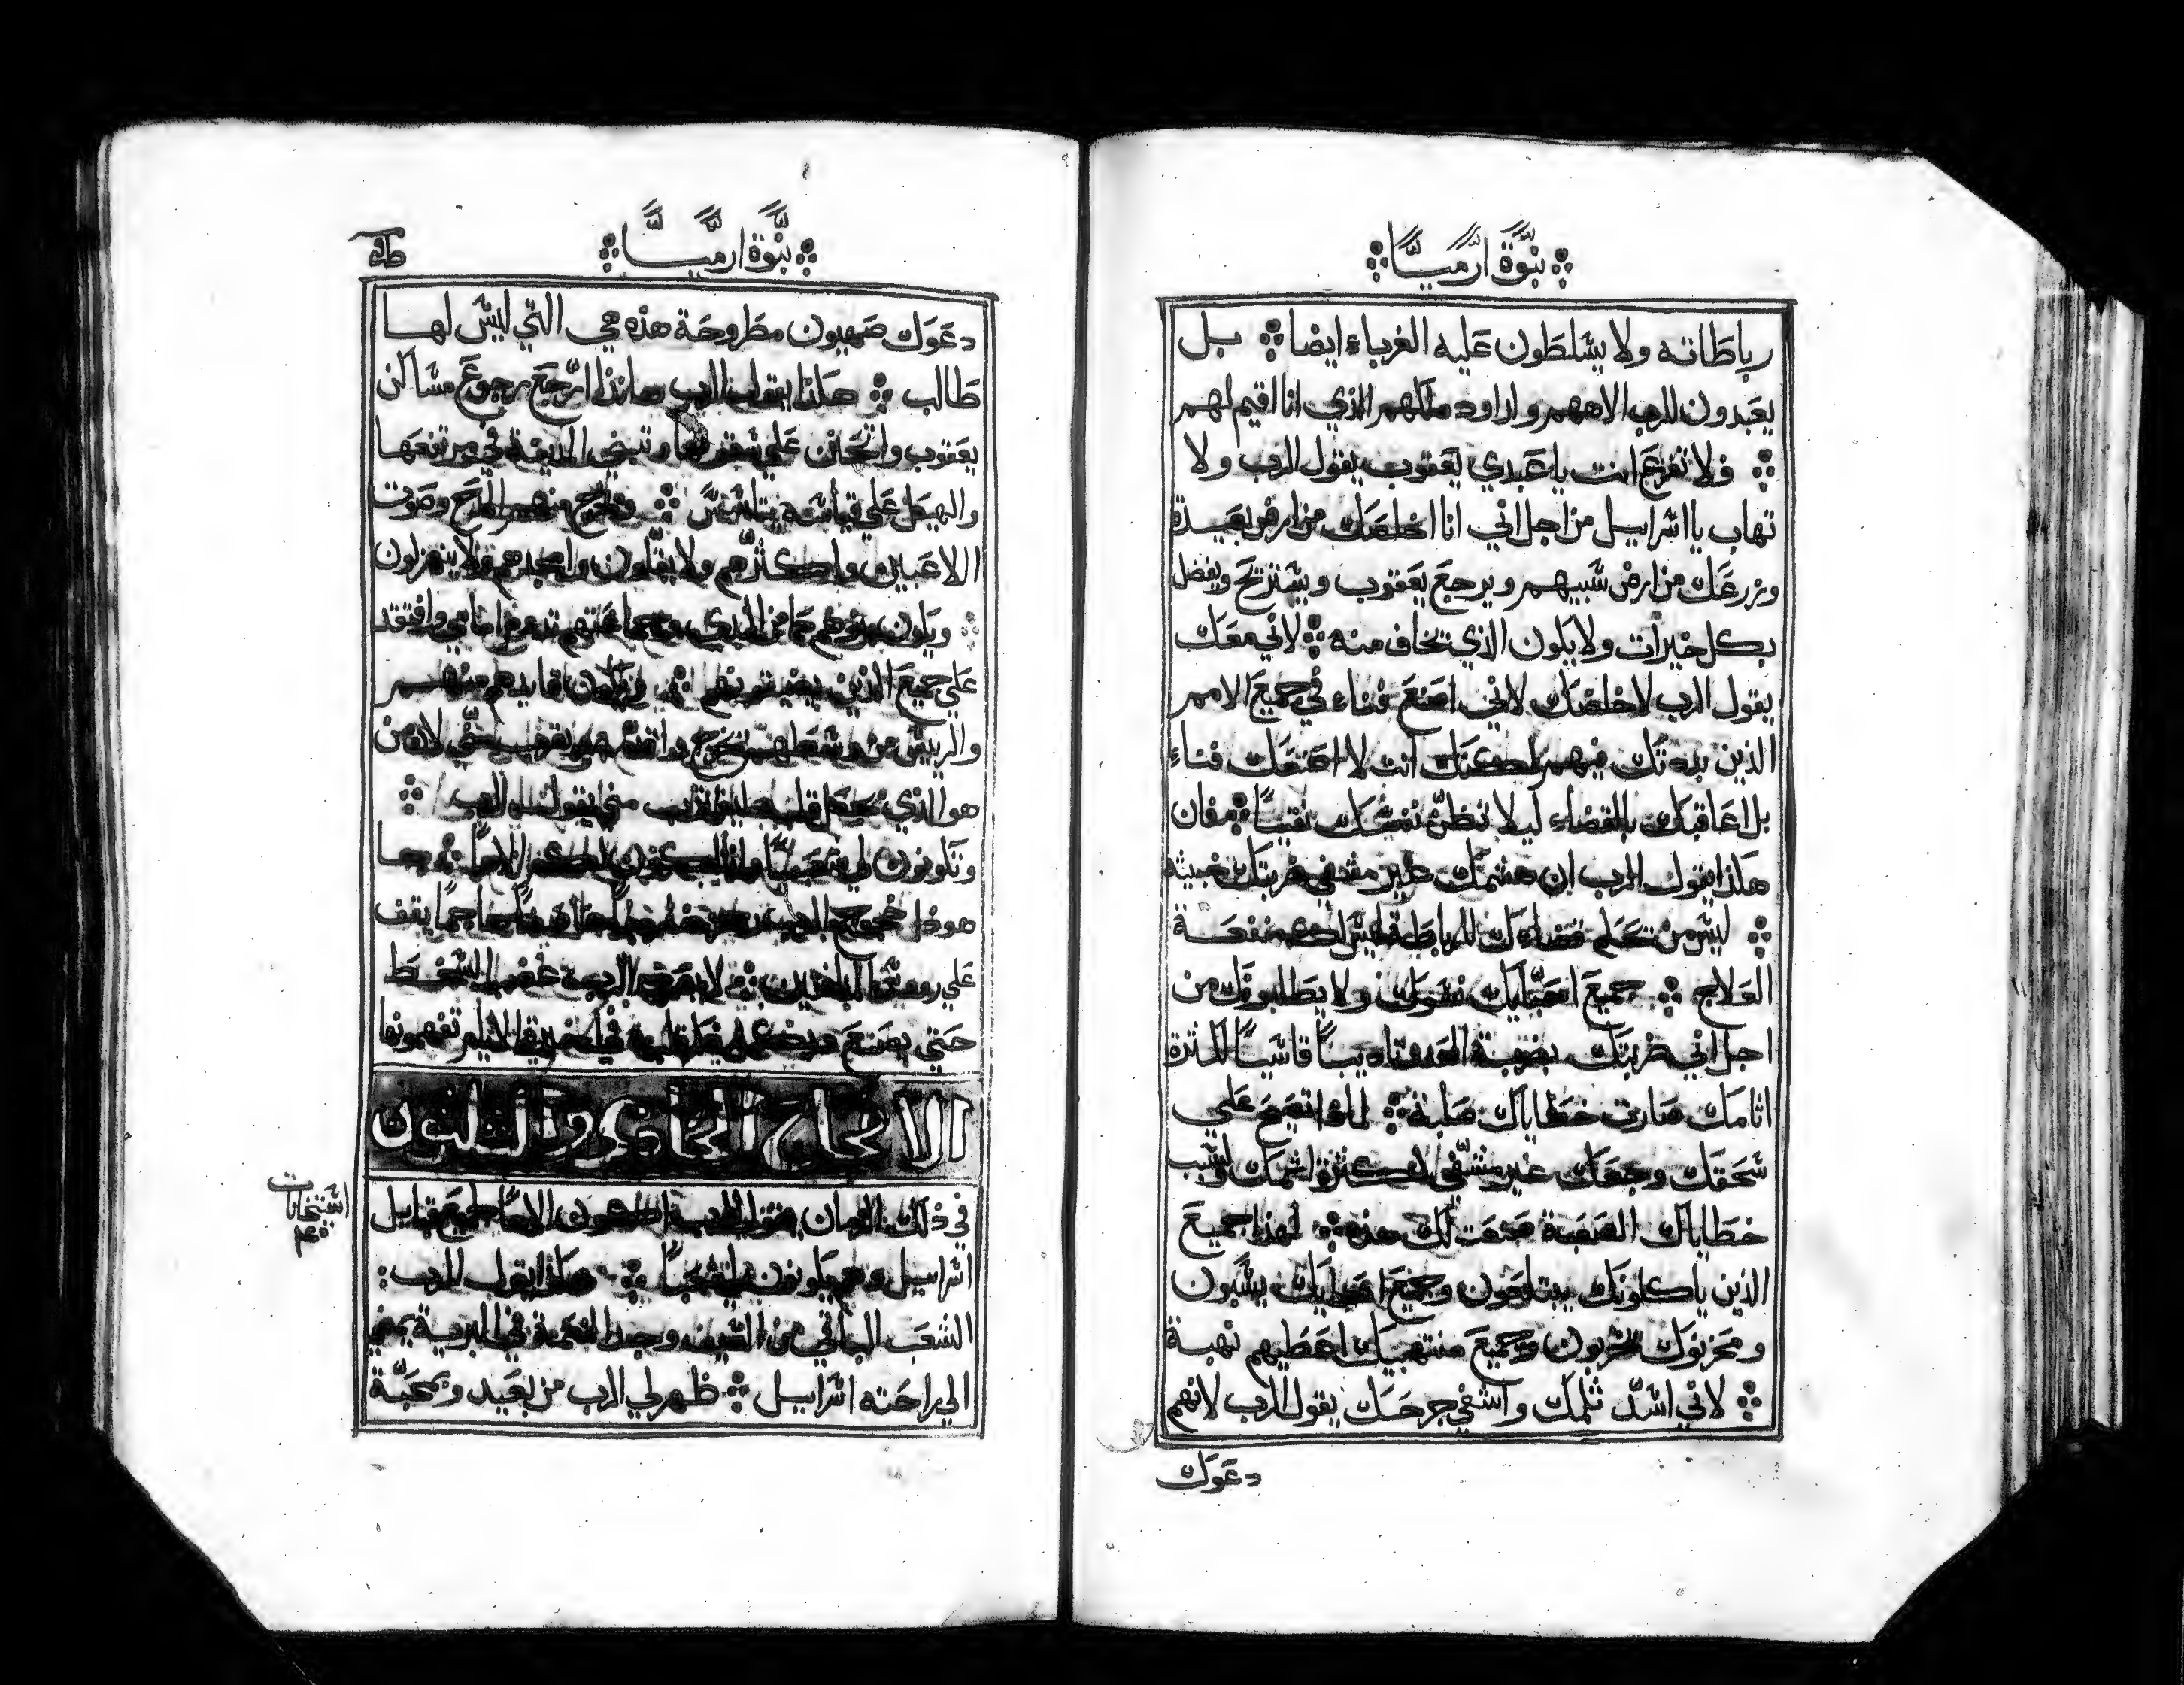 نبوة ارميا
رباطاته ولا يتسلطون عليه الغرباء ايضا بل
يعبدون للرب الاههم ولداود ملكهم الذي انا اقيم لهم
فلا تفزع انت يا عبدي يعقوب يقول الرب ولا
تهاب يا اسراييل من اجل اني انا اخلصك من ارض بعيدة
وزرعك من ارض سبيهم ويرجع يعقوب ويستريح ويفضل
بكل خيرات ولا يكون الذي تخاف منه لاني معك
يقول الرب لاخلصك لاني اصنع فناء في جميع الامم
الذين بددتك فيهم لكنك انت لا اصنعك فناء
بل اعاقبك بالقضاء ليلا تظن نفسك نقيا فان
هكذا يقول الرب ان هشمك غير مشفي ضربتك خبيثه
ليس من تحكم قضاءك للرباطة ليس لك منفعة
العلاج جميع احبايك نسوك ولا يطلبونك من
اجل اني ضربتك بضربة العدو تاديبا قاسيا لكثرة
اثامك صارت خطاياك صلبة لماذا تصيح علي
سحقك وجعك غير مشفي لكثرة اثمك ولسبب
خطاياك الصعبة صنعت لك هذه لهذا جميع
الذين ياكلونك يبتلعون وجميع اعدايك يسبون
ومخربوك يخربون وجميع منتهبيك اعطيهم نهبة
لاني اسد ثلمك واشفي جرحك يقول الرب لانهم
دعوك
نبوة ارميا
دعوك صهيون مطروحة هذه هي التي ليس لها
طالب هكذا يقول الرب هانذا ارجع رجوع مساكن
يعقوب واتحنن علي سقوفها وتبني المدينة في مرتفعها
والهيكل علي قياسه يتاسس ويخرج منهم المدح وصوت
اللاعبين واكثرهم ولا يقلون وامجدهم ولا ينهزلون
ويكون بنوهم كما من البدي وجماعتهم تدوم امامي وافتقد
علي جميع الذين يضيقونهم ويكون قايدهم منهم
والرييس من وسطهم يخرج واقدمه ويقرب مني لان من
هو الذي يجعل قلبه ليقترب مني يقول الرب
وتكونون لي شعبا وانا اكون لكم الاها ها
هوذا عجاج الرب رجز خارج عجاج هاجما يقف
علي رووس المنافقين لا يصرف الرب غضب السخط
حتي يصنع ويكمل فكر قلبه في اخر الايام تفهمونها
الاصحاح الحادي والثلثون
في ذلك الزمان يقول الرب اكون الاها لجميع قبايل
اسراييل وهم يكونون لي شعبا هكذا يقول الرب
الشعب الباقي من السيف وجد النعمة في البرية يمضي
الي راحته اسراييل ظهر لي الرب من بعيد وبمحبة